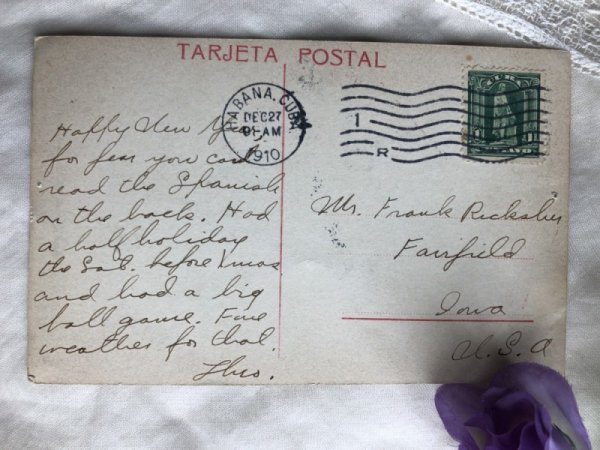 TARJETA POSTAL
HABANA, CUBA
DEC 27
9 - AM
1910
1
R
CUBA
Happy New
for fear you can't
read the Spanish
on the back. Had
a half holiday
the Sat. before Xmas
and had a big
ball game. Fine
weather for that.
Theo.
Mr. Frank
Fairfield
Iowa
U.S.A